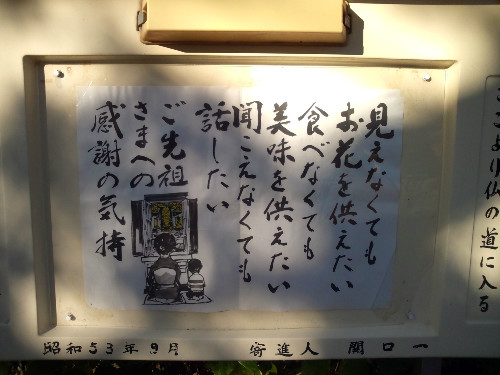 見えなくても
お花を供えたい
食べなくても
美味を供えたい
聞こえなくても
話したい
ご先祖
さまへの
感謝の気持
仏の道に入る
昭和53年9月
寄進人 関口一